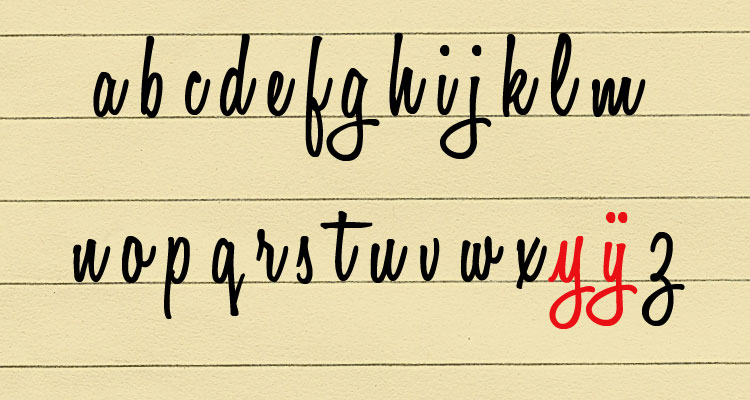 a b c d e f g h i j k l m
n o p q r s t u v w x y ÿ z